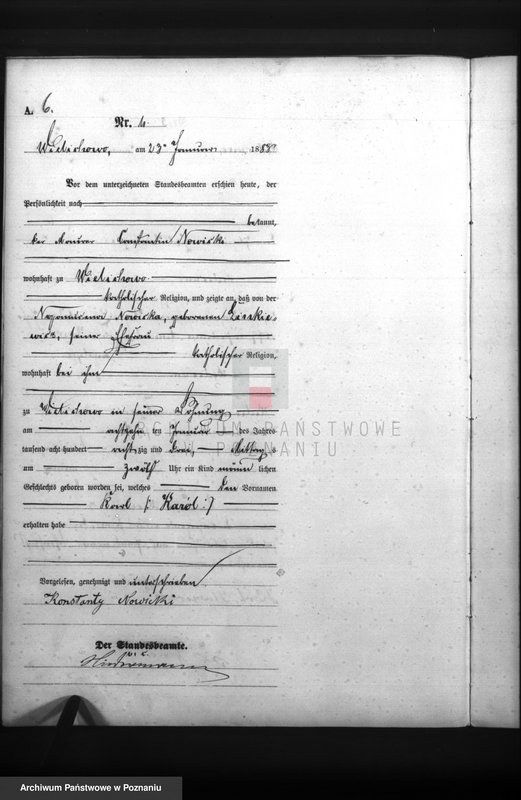 A. 6.
Nr. 6
Wielichowo, am 23ten Januar 1883
Vor dem unterzeichneten Standesbeamten erschien heute, der
Persönlichkeit nach
bekannt,
der Maurer Constantin Nowicki
wohnhaft zu Wielichowo
katholischer Religion, und zeigte an, daß von der
Nowicka, geborenen
seiner Ehefrau
katholischer Religion,
wohnhaft bei ihm
zu Wielichowo in seiner Wohnung
am achtzehn ten Januar des Jahres
tausend acht hundert achtzig und drei, Mittags
um zwölf Uhr ein Kind männlichen
Geschlechts geboren worden sei, welches den Vornamen
Karl (: Karól :)
erhalten habe
Vorgelesen, genehmigt und unterschrieben
Konstanty Nowicki
Der Standesbeamte.
ARCHIWUM PAŃSTWOWE
W POZNANIU
Archiwum Państwowe w Poznaniu